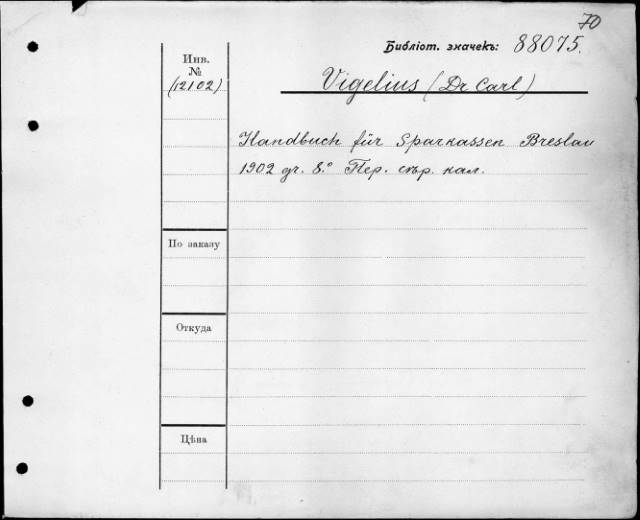 70
Библіот. значекъ: 88075.
Инв.
№
(12102)
Vigelius (Dr Carl)
Handbuch für Sparkassen Breslau
1902 gr. 8.° Пер. сѣр. кал.
По заказу
Откуда
Цѣна